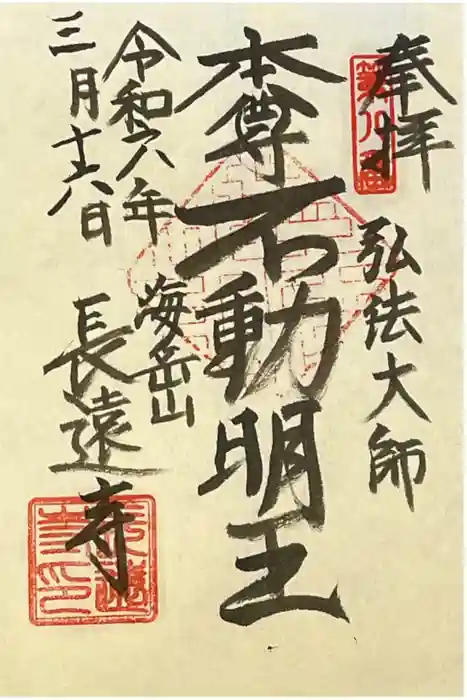 奉拝
弘法大師
本尊不動明王
令和六年
三月十六日
海岳山
長遠寺
長遠寺印